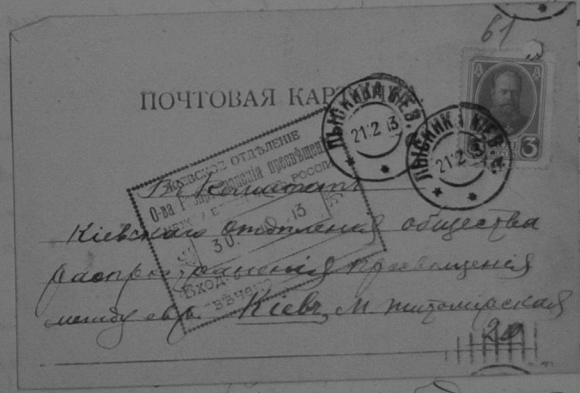 61
ПОЧТОВАЯ КАР
ЛЫСЯНКА КІЕВ.
21 2 13
ЛЫСЯНКА КІЕВ.
21 2
3
КІЕВСКОЕ ОТДѢЛЕНІЕ
О-ва Распространенія просвѣщенія
РОССІИ
30 13
ВХОД
Въ Комитетъ
Кіевскаго отдѣленія общества
распространенія просвѣщенія
между евр. Кіевъ, М. Житомірская
20